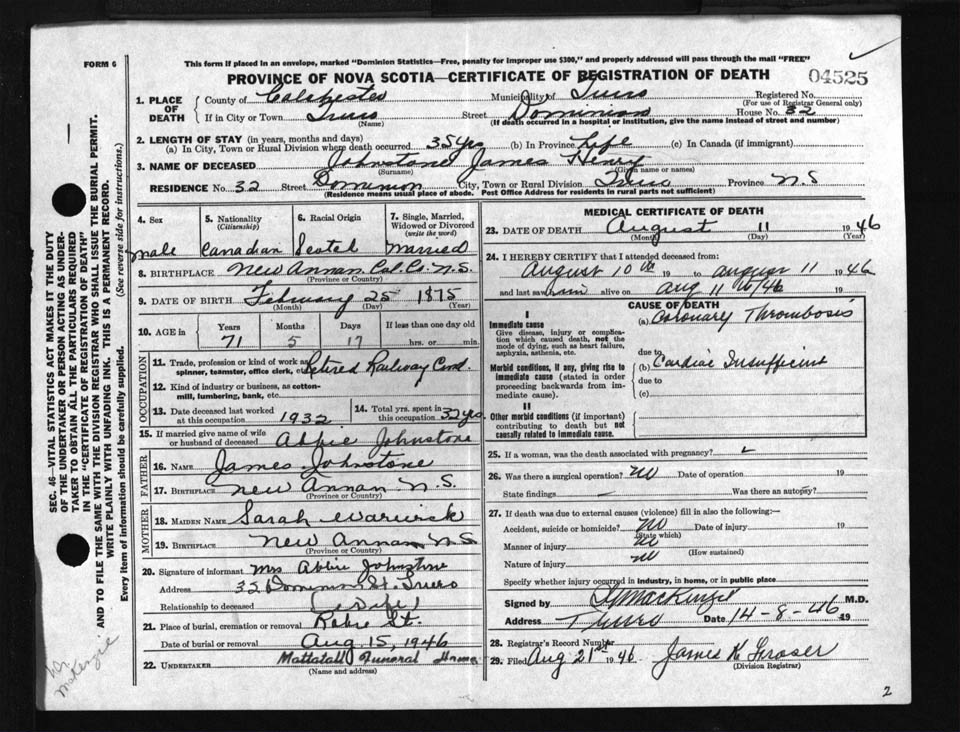 This form if placed in an envelope, marked "Dominion Statistics—Free, penalty for improper use $300," and properly addressed will pass through the mail "FREE"
FORM 6
PROVINCE OF NOVA SCOTIA—CERTIFICATE OF REGISTRATION OF DEATH
04525
1. PLACE OF DEATH
County of Colchester Municipality of Truro Registered No.
(For use of Registrar General only)
If in City or Town Truro Street Dominion House No. 32
(Name) (If death occurred in a hospital or institution, give the name instead of street and number)
2. LENGTH OF STAY (in years, months and days)
(a) In City, Town or Rural Division where death occurred 35 yrs (b) In Province Life (c) In Canada (if immigrant)
3. NAME OF DECEASED Johnstone James Henry
(Surname) (Given name or names)
RESIDENCE No. 32 Street Dominion City, Town or Rural Division Truro Province N.S
(Residence means usual place of abode. Post Office Address for residents in rural parts not sufficient)
4. Sex
male
5. Nationality
(Citizenship)
Canadian
6. Racial Origin
Scotch
7. Single, Married, Widowed or Divorced
(write the word)
Married
8. BIRTHPLACE New Annan Col. Co. N.S.
(Province or Country)
9. DATE OF BIRTH February 25 1875
(Month) (Day) (Year)
10. AGE in
Years Months Days If less than one day old
71 5 17 hrs. or min.
OCCUPATION
11. Trade, profession or kind of work as spinner, teamster, office clerk, etc. Retired Railway Cond.
12. Kind of industry or business, as cotton-mill, lumbering, bank, etc.
13. Date deceased last worked at this occupation 1932
14. Total yrs. spent in this occupation 32 yrs.
15. If married give name of wife or husband of deceased Abbie Johnstone
FATHER
16. NAME James Johnstone
17. BIRTHPLACE New Annan N.S.
(Province or Country)
MOTHER
18. MAIDEN NAME Sarah Warwick
19. BIRTHPLACE New Annan N.S
(Province or Country)
20. Signature of informant Mrs Abbie Johnstone
Address 32 Dominion St. Truro
Relationship to deceased (wife)
21. Place of burial, cremation or removal Robie St.
Date of burial or removal Aug 15, 1946
22. UNDERTAKER Mattatall Funeral Home
(Name and address)
MEDICAL CERTIFICATE OF DEATH
23. DATE OF DEATH August 11 1946
(Month) (Day) (Year)
24. I HEREBY CERTIFY that I attended deceased from:
August 10th 19 to August 11 1946
and last saw him alive on Aug 11 19/46
CAUSE OF DEATH
I
Immediate cause
Give disease, injury or complication which caused death, not the mode of dying, such as heart failure, asphyxia, asthenia, etc.
(a) Coronary Thrombosis
due to
Morbid conditions, if any, giving rise to immediate cause (stated in order proceeding backwards from immediate cause).
(b) Cardiac Insufficient
due to
(c)
II
Other morbid conditions (if important) contributing to death but not causally related to immediate cause.
25. If a woman, was the death associated with pregnancy?
26. Was there a surgical operation? no Date of operation 19
State findings Was there an autopsy?
27. If death was due to external causes (violence) fill in also the following:—
Accident, suicide or homicide? no Date of injury 19
(State which)
Manner of injury no
(How sustained)
Nature of injury no
Specify whether injury occurred in industry, in home, or in public place
Signed by MacKenzie M.D.
Address Truro Date 14-8-46 19
28. Registrar's Record Number
29. Filed Aug 21st 1946 James K Fraser
(Division Registrar)
2
SEC. 46—VITAL STATISTICS ACT MAKES IT THE DUTY
OF THE UNDERTAKER OR PERSON ACTING AS UNDER-
TAKER TO OBTAIN ALL THE PARTICULARS REQUIRED
IN THE "CERTIFICATE OF REGISTRATION OF DEATH"
AND TO FILE THE SAME WITH THE DIVISION REGISTRAR WHO SHALL ISSUE THE BURIAL PERMIT.
WRITE PLAINLY WITH UNFADING INK. THIS IS A PERMANENT RECORD.
Every item of information should be carefully supplied. (See reverse side for instructions.)
Dr. McKenzie